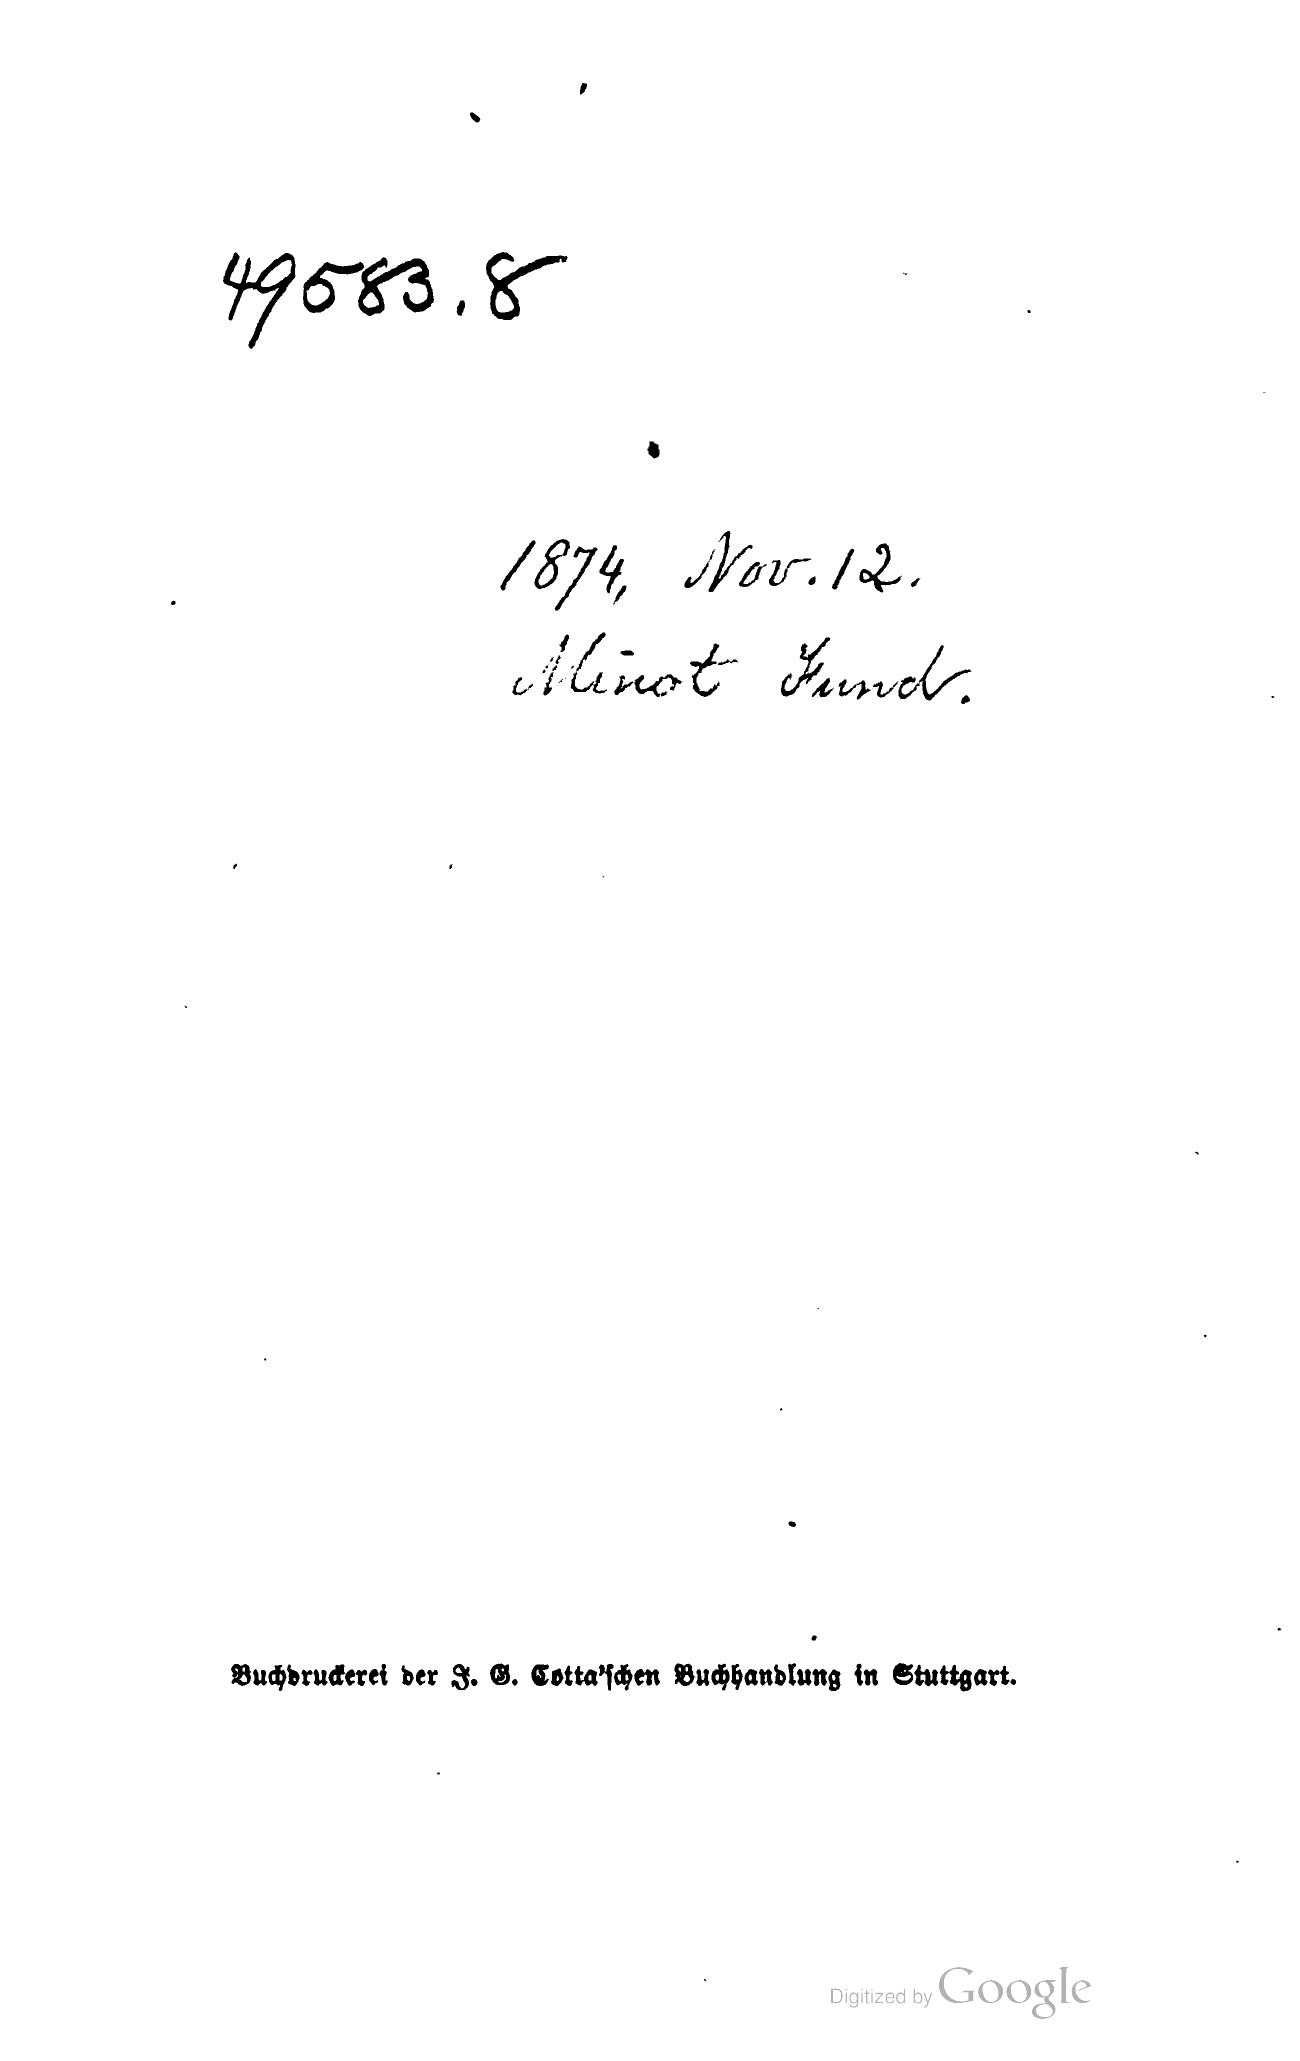 49583.8
1874, Nov. 12.
Minot Fund.
Buchdruckerei der J. G. Cotta'schen Buchhandlung in Stuttgart.
Digitized by Google